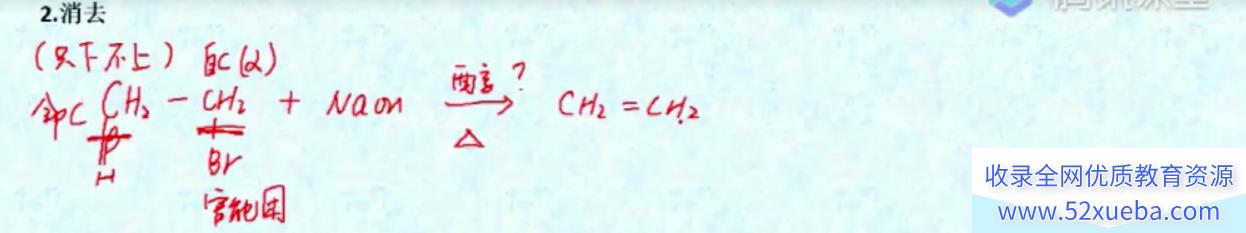 2.消去
腾讯课堂
(只下不上) 自C(α)
邻C CH₂ - CH₂ + NaOH 醇? △ → CH₂ = CH₂
H
Br
官能团
收录全网优质教育资源
www.52xueba.com